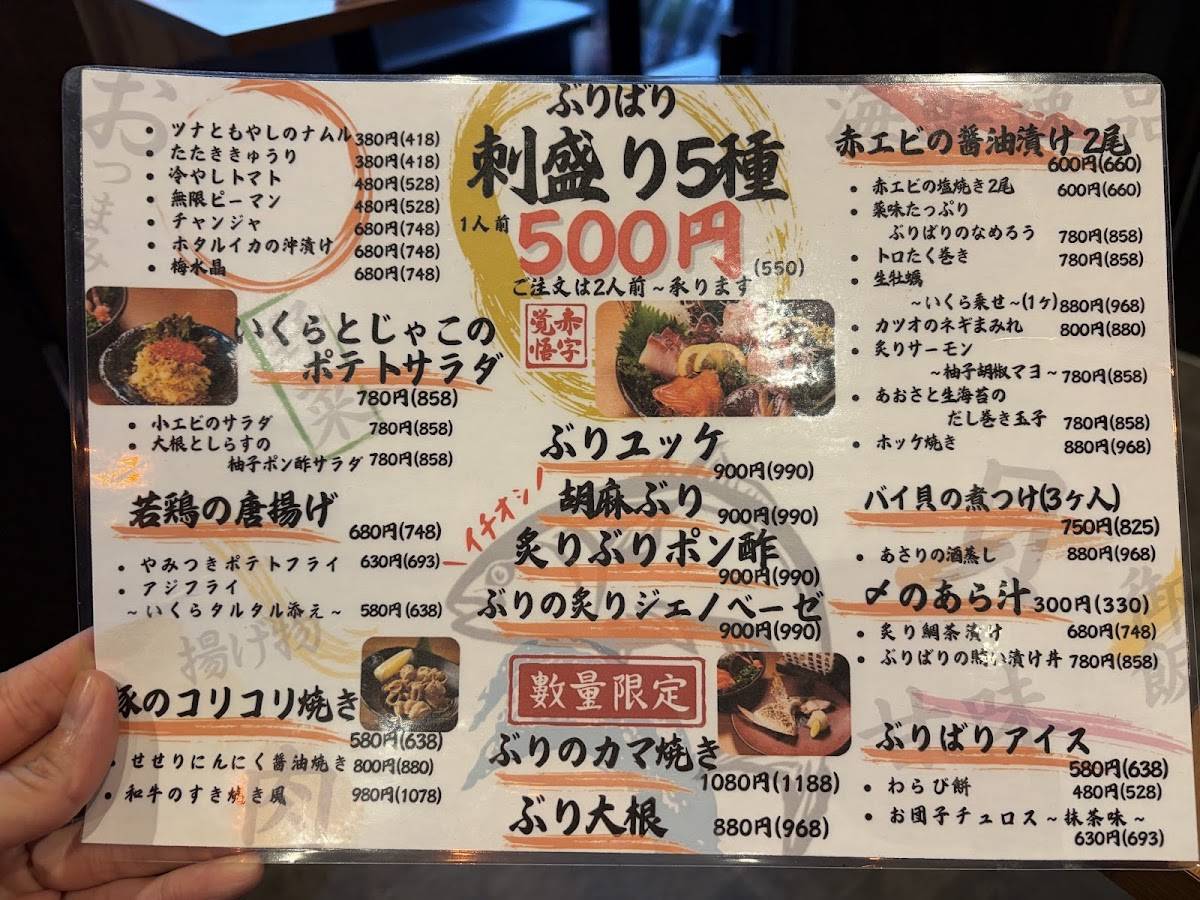 おつまみ
ツナともやしのナムル 380円(418)
たたききゅうり 380円(418)
冷やしトマト 480円(528)
無限ピーマン 480円(528)
チャンジャ 680円(748)
ホタルイカの沖漬け 680円(748)
梅水晶 680円(748)
いくらとじゃこの
ポテトサラダ
780円(858)
小エビのサラダ 780円(858)
大根としらすの
柚子ポン酢サラダ 780円(858)
若鶏の唐揚げ
680円(748)
やみつきポテトフライ 630円(693)
アジフライ
~いくらタルタル添え~ 580円(638)
揚げ物
豚のコリコリ焼き
580円(638)
せせりにんにく醤油焼き 800円(880)
和牛のすき焼き風 980円(1078)
肉
ぶりばり
刺盛り5種
1人前 500円
(550)
ご注文は2人前~承ります
赤字
覚悟
イチオシ!
ぶりユッケ
900円(990)
胡麻ぶり 900円(990)
炙りぶりポン酢
900円(990)
ぶりの炙りジェノベーゼ
900円(990)
數量限定
ぶりのカマ焼き
1080円(1188)
ぶり大根 880円(968)
海鮮逸品
赤エビの醤油漬け 2尾
600円(660)
赤エビの塩焼き2尾 600円(660)
薬味たっぷり
ぶりばりのなめろう 780円(858)
トロたく巻き 780円(858)
生牡蠣
~いくら乗せ~(1ヶ) 880円(968)
カツオのネギまみれ 800円(880)
炙りサーモン
~柚子胡椒マヨ~ 780円(858)
あおさと生海苔の
だし巻き玉子 780円(858)
ホッケ焼き 880円(968)
バイ貝の煮つけ(3ヶ入)
750円(825)
あさりの酒蒸し 880円(968)
〆のあら汁 300円(330)
炙り鯛茶漬け 680円(748)
ぶりばりの賄い漬け丼 780円(858)
御飯
甘味
ぶりばりアイス
580円(638)
わらび餅 480円(528)
お団子チュロス~抹茶味~
630円(693)